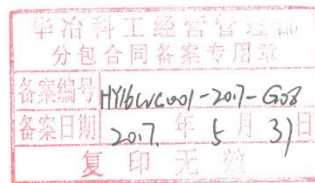 华冶科工经营管理部
分包合同备案专用章
备案编号 HY16WC001-2017-G08
备案日期 2017. 年 5 月 31 日
复印无效